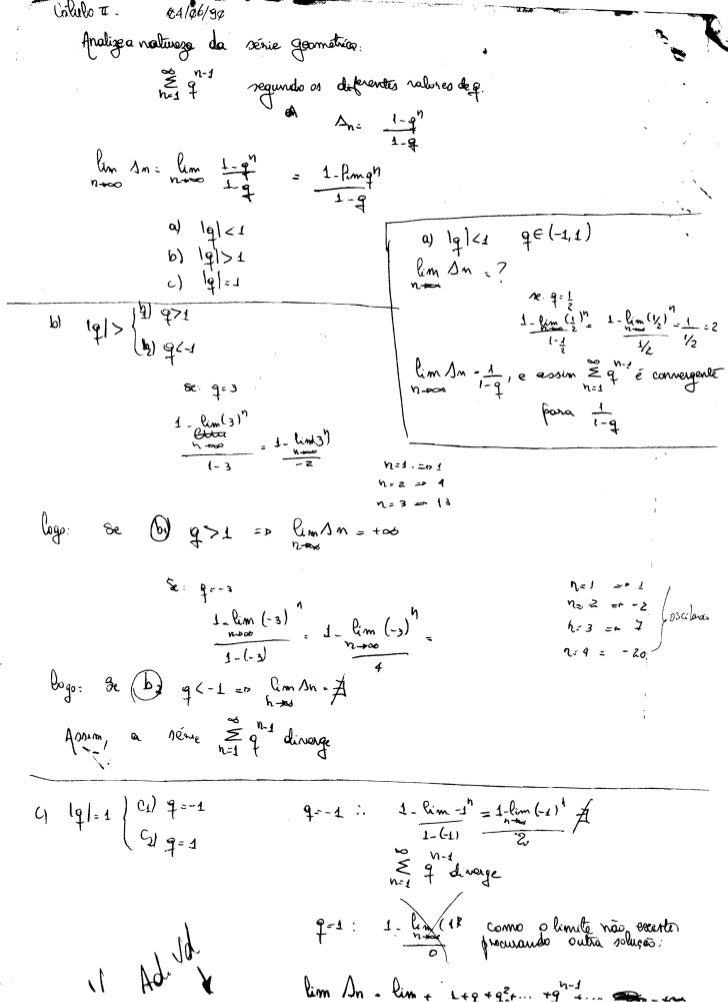 Cálculo II. 04/06/90
Analize a natureza da série geométrica:
∑_{n=1}^{∞} q^{n-1} segundo os diferentes valores de q.
Sn = (1-q^n)/(1-q)
lim_{n→∞} Sn = lim_{n→∞} (1-q^n)/(1-q) = (1-lim q^n)/(1-q)
a) |q|<1
b) |q|>1
c) |q|=1
a) |q|<1 q∈(-1,1)
lim_{n→∞} Sn = ?
se. q=1/2
(1-lim_{n→∞}(1/2)^n)/(1-1/2) = (1-lim_{n→∞}(1/2)^n)/(1/2) = 1/(1/2) = 2
lim_{n→∞} Sn = 1/(1-q), e assim ∑_{n=1}^{∞} q^{n-1} é convergente
para 1/(1-q)
b) |q|> { 1) q>1
2) q<-1
se: q=3
(1-lim_{n→∞}(3)^n)/(1-3) = (1-lim_{n→∞}3^n)/(-2)
n=1 ⇒ 1
n=2 ⇒ 4
n=3 ⇒ 13
logo: se b1 q>1 ⇒ lim_{n→∞} Sn = +∞
se: q=-3
(1-lim_{n→∞}(-3)^n)/(1-(-3)) = (1-lim_{n→∞}(-3)^n)/4 =
n=1 ⇒ 1
n=2 ⇒ -2
n=3 ⇒ 7
n=4 = -20
logo: se b2 q<-1 ⇒ lim_{n→∞} Sn = ∄
Assim, a série ∑_{n=1}^{∞} q^{n-1} diverge
c) |q|=1 { c1) q=-1
c2) q=1
q=-1 ∴ (1-lim -1^n)/(1-(-1)) = (1-lim_{n→∞}(-1)^n)/2 ∄
∑_{n=1}^{∞} q^{n-1} diverge
q=1: (1-lim_{n→∞}(1)^n)/0 como o limite não
procurando outra solução:
lim Sn = lim 1+q+q²+... +q^{n-1}+...